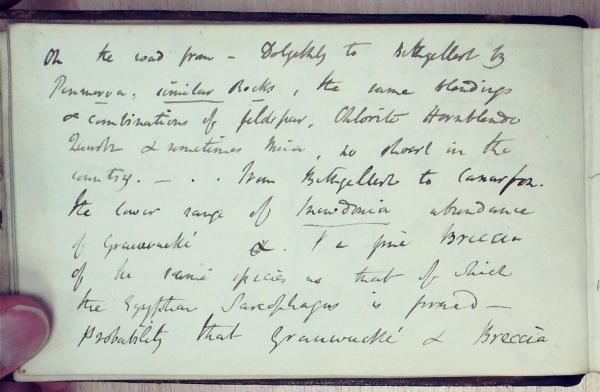 On the road from - Dolgekly to Bethgellert by
Penmorva, similar Rocks, the same blendings
& combinations of feldspar, Chlorite Hornblende
Quartz & sometimes Mica, no shoerl in the
country. - . . from Bethgellert to Canarfon.
the lower range of Snowdonia abundance
of Grauwacké &. a fine Breccia
of the same species as that of which
the Egyptian Sarcophagus is formed -
Probability that Grauwacké & Breccia